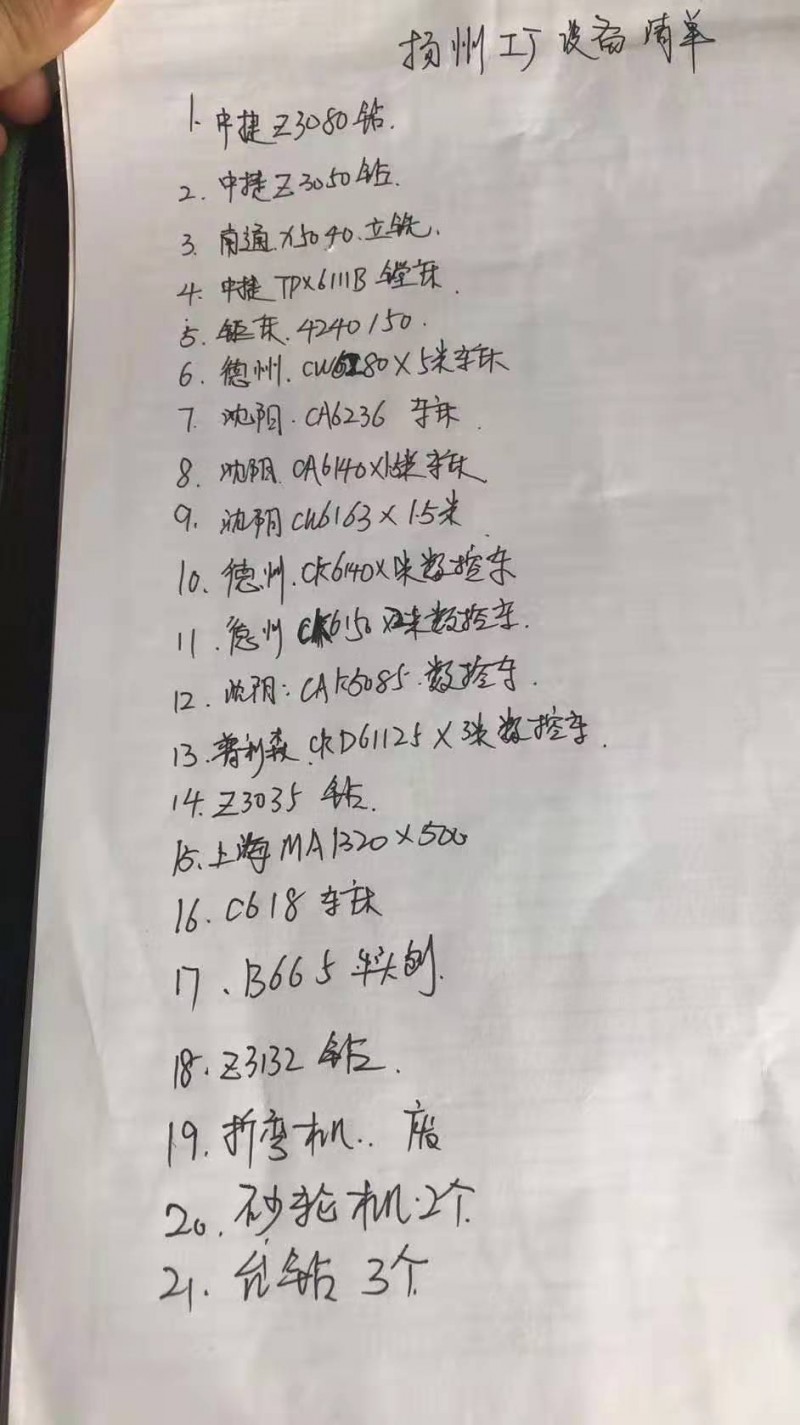 扬州工厂设备清单
1. 中捷Z3080钻.
2. 中捷Z3050钻.
3. 南通.X5040.立铣.
4. 中捷TPX6111B镗床.
5. 锯床.4240/50.
6. 德州.CW6280X5米车床
7. 沈阳.CA6236 车床.
8. 沈阳CA6140X 车床.
9. 沈阳CW6163X1.5米
10. 德州.CK6140X 米数控车
11. 德州CK6150X 米数控车.
12. 沈阳:CAK5085.数控车.
13. 普利森.CKD61125X3米数控车.
14. Z3035 钻.
15. 上海MA1320X500
16. C618车床
17、B665牛头刨.
18. Z3132钻.
19. 折弯机.. 废
20. 砂轮机.2个
21. 台钻 3个